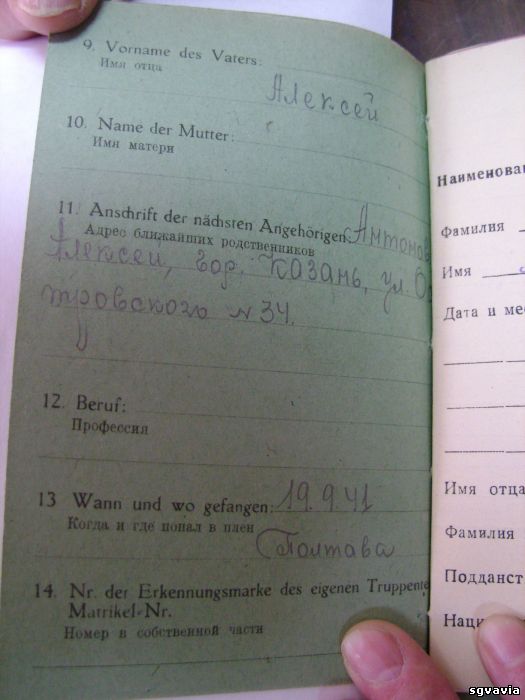 9. Vorname des Vaters:
Имя отца
Алексей
10. Name der Mutter:
Имя матери
11. Anschrift der nächsten Angehörigen: Антонов
Адрес ближайших родственников
Алексей, гор. Казань, ул. Ос
тровского № 34.
12. Beruf:
Профессия
13 Wann und wo gefangen: 19.9.41
Когда и где попал в плен
Полтава
14. Nr. der Erkennungsmarke des eigenen Truppente
Matrikel-Nr.
Номер в собственной части
Наименова
Фамилия
Имя
Дата и ме
Имя отца
Фамилия
Подданст
Наци
sgvavia